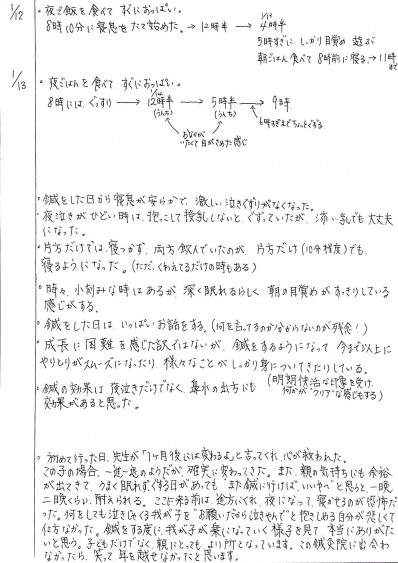 1/12 ・夜ご飯を食べて すぐにおっぱい。
8時10分に寝息をたて始めた。→12時半 → 1/13 4時半
5時すぎに しっかり目覚め 遊ぶ
朝ごはん食べて 8時前に寝る→11時まで
1/13 ・夜ごはんを食べて すぐにおっぱい。
8時には ぐっすり → 1/14 12時半(うんち) → 5時半(うんち) → 9時
おなかがいたくて目がさめた感じ
・鍼をした日から寝息が安らかで、激しい泣きぐずりがなくなった。
・夜泣きがひどい時は、抱っこして授乳しないと、ぐずっていたが、添い乳でも大丈夫
になった。
・片方だけでは、寝つかず、両方飲んでいたのが、片方だけ(10分程度)でも、
寝るようになった。(ただ、くわえてるだけの時もある)
・時々、小刻みな時はあるが、深く眠れるらしく 朝の目覚めがすっきりしている
感じがする。
・鍼をした日は、いっぱいお話をする。(何を言ってるのか分からないのが残念!)
・成長に困難を感じた訳ではないが、鍼をするようになって、今まで以上に
やりとりがスムーズになったり、様々なことがしっかり身についてきたりしている。
(明朗快活な印象を受け、
何かが"クリア"な感じもする)
・鍼の効果は 夜泣きだけでなく、鼻水の出方にも
効果があると思った。
・初めて行った日、先生が「1ヶ月後には変わるよ」と言ってくれ、心が救われた。
この子の場合、一進一退のようだが、確実に変わってきた。また、親の気持ちにも余裕
が出てきて、うまく眠れずぐずる日があっても"また鍼に行けば、いいや"と思うと、一晩
二晩くらい、耐えられる。ここに来る前は、途方にくれ、夜になって、寝かせるのが恐怖だ
った。何をしても泣きじゃくる我が子を"お願いだから泣きやんで"と抱きしめる自分が悲しくて
仕方なかった。鍼をする度に、我が子が楽になっていく様子を見て、本当にありがた
いと思う。子どもだけでなく、親にとってもより所となっています。この鍼灸院に出会わ
なかったら、笑って年を越せなかったと思います。